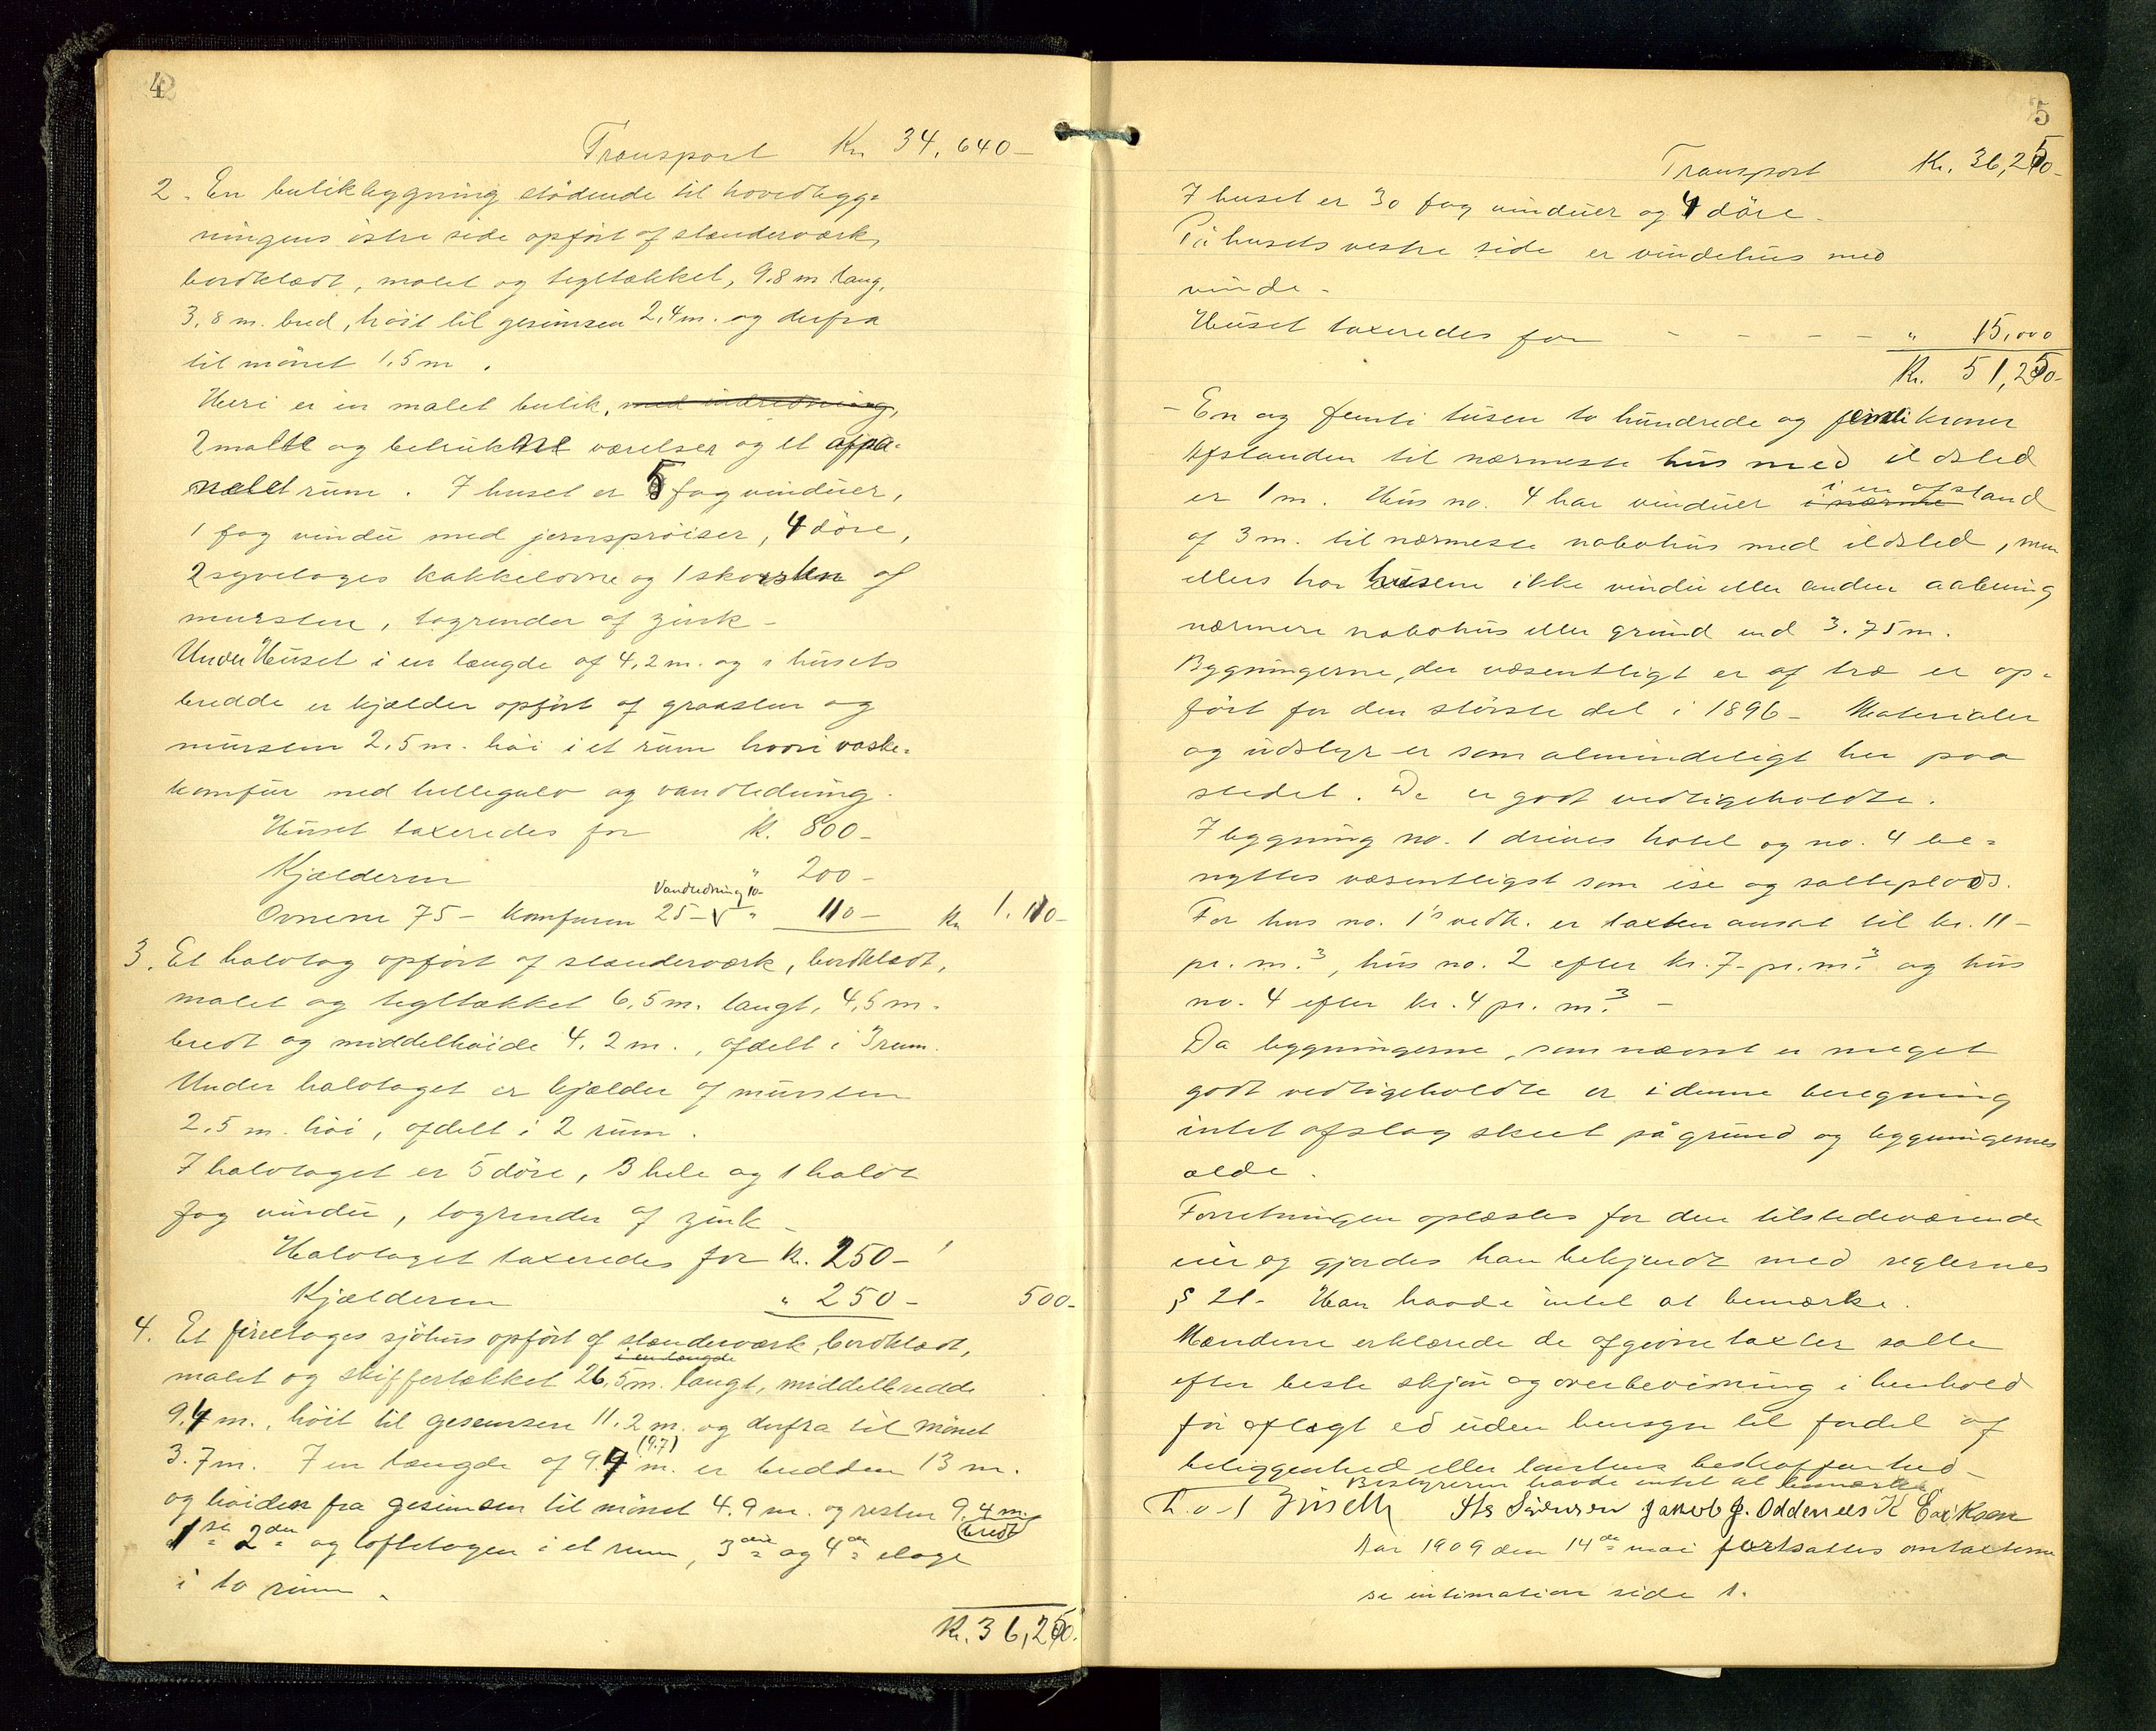 4
Transport Kr. 34,640-
2. En butikbygning stödende til hovedbyg=
ningens östre side opfört af stenderværk,
bordklædt, malet og tegltækket, 9.8 m lang,
3,8 m. bred, höit til gesimsen 2,4 m. og derfra
til mönet 1,5 m.
Heri er en malet butik, med indredning,
2 malte og betrukne værelser og et afpa-
nelet rum. I huset er 5 fag vinduer,
1 fag vindu med jernspröiser, 4 döre,
2 syvetages kakkelovne og 1 skorsten af
mursten, tagrender af zink -
Under Huset i en længde af 4,2 m. og i husets
bredde er kjælder opfört af graasten og
mursten 2,5 m. höi i et rum hvori vaske=
komfur med hellegulv og vandledning.
Huset taxeredes for k. 800-
Kjælderen " 200-
Vandledning 10-
Ovnene 75- Komfuren 25- " 110- Kr 1.110-
3. Et halvtag opfört af stenderværk, bordklædt,
malet og tegltækket 6,5 m. langt, 4,5 m.
bredt og middelhöide 4.2 m., afdelt i 3 rum.
Under halvtaget er kjælder af mursten
2.5 m. höi, afdelt i 2 rum.
I halvtaget er 5 döre, 3 hele og 1 halvt
fag vindu, tagrender af zink -
Halvtaget taxeredes for k. 250-
Kjælderen " 250- 500-
4. Et fireetages sjöhus opfört af stenderværk, bordklædt,
i en længde
malet og skiffertækket 26,5 m. langt, middelbredde
9.4 m., höit til gesimsen 11.2 m. og derfra til mönet
(9.7)
3.7 m. I en længde af 9.7 m. er bredden 13 m.
og höiden fra gesimsen til mönet 4.9 m. og resten 9,4 m.
bredt
1ste 2den og loftetagen i et rum, 3die og 4de etage
i to rum.
Kr. 36,250.
5
Transport Kr. 36,250-
I huset er 30 fag vinduer og 4 döre.
På husets vestre side er vindehus med
vinde.
Huset taxeredes for - - - - " 15,000
Kr. 51,250-
- En og femti tusen to hundrede og femti kroner
Afstanden til nærmeste hus med ildsted
i en afstand
er 1 m. Hus no. 4 har vinduer i nærme
af 3 m. til nærmeste nabohus med ildsted, men
ellers har husene ikke vindu eller anden aabning
nærmere nabohus eller grund end 3.75 m.
Bygningerne, der væsentligt er af træ er op=
fört for den störste del i 1896 - Materialer
og udstyr er som almindeligt her paa
stedet. De er godt vedligeholdte.
I bygning no. 1 drives hotel og no. 4 be=
nyttes væsentligst som ise og salteplads.
For hus no. 1's vedk. er taxten ansat til kr. 11-
pr. m.3, hus no. 2 efter kr. 7- pr. m.3 og hus
no. 4 efter kr. 4 pr. m.3 -
Da bygningerne, som nævnt er meget
godt vedligeholdte er i denne beregning
intet afslag skeet på grund og bygningernes
ælde.
Forretningen oplæstes for den tilstedeværende
eier og gjordes han bekjendt med reglernes
§ 21. Han havde intet at bemærke.
Mændene erklærede de afgivne taxter satte
efter beste skjön og overbevisning i henhold
för aflagt ed uden hensyn til fordel af
beliggenhed eller tomtens beskaffenhed -
Bestyreren havde intet at bemærke
Jakob J. Oddenes K Eriksen
Aar 1909 den 14de mai fortsattes omtaxterne
se intimation side 1.